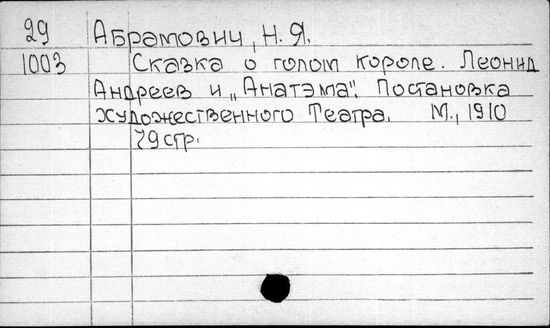 29 Абрамович, Н.Я.
1003 Сказка о голом короле. Леонид
Андреев и „Анатэма". Постановка
Художественного Театра. М., 1910
79 стр.